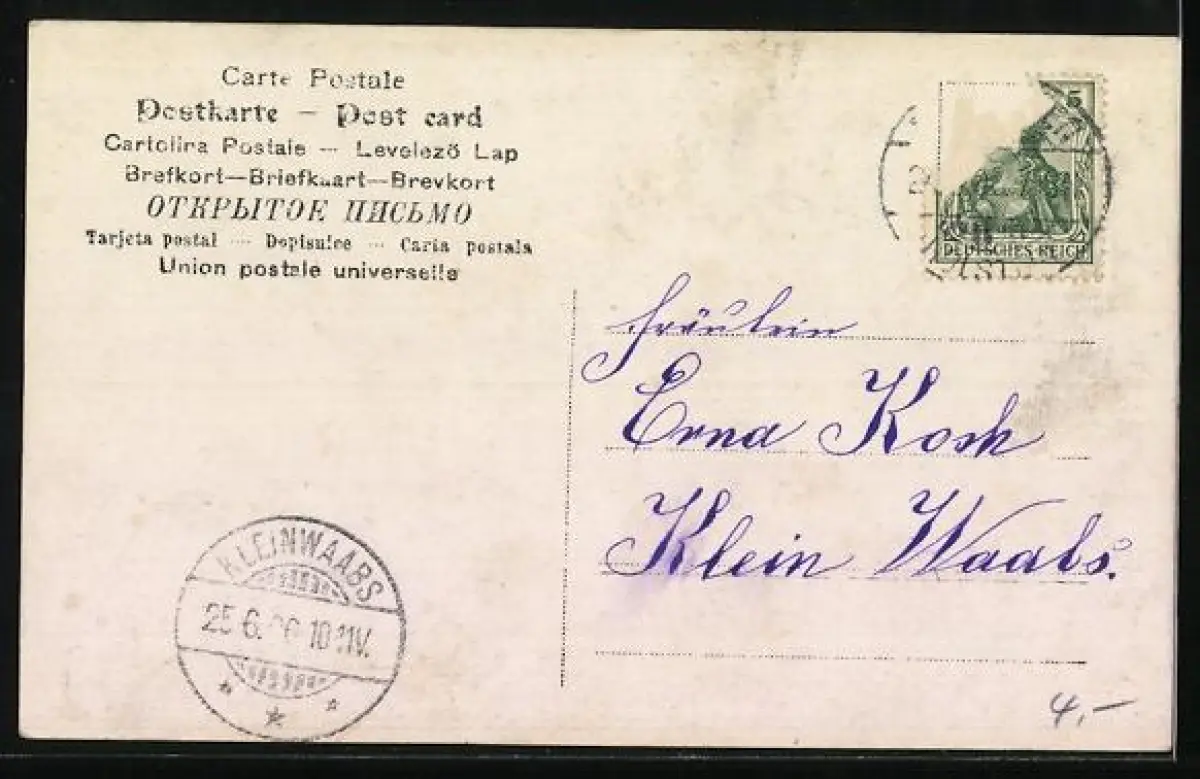 Carte Postale
Postkarte – Post card
Cartolina Postale – Levelező Lap
Brefkort—Briefkaart—Brevkort
ОТКРЫТОЕ ПИСЬМО
Tarjeta postal — Dopisnice — Caria postala
Union postale universelle
5
DEUTSCHES REICH
Fräulein
Erna Kosk
Klein Waabs.
KLEINWAABS
25 6. 10-11V.
4,-